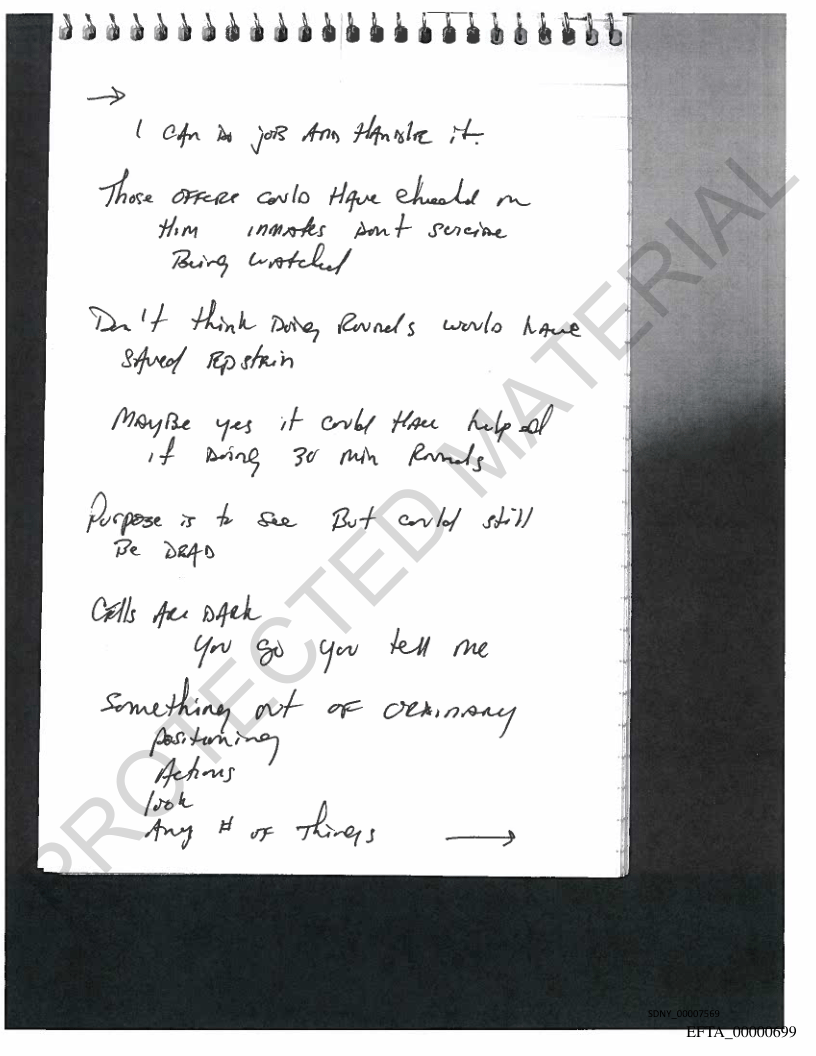 →
I CAN DO JOB AND HANDLE it.
Those OFFICERS could HAVE checked on
HIM INMATES DON'T SUICIDE
Being WATCHED
Don't think Doing Rounds would have
SAVED Epstein
MAYBE yes it could HAVE helped
if Doing 30 min Rounds
Purpose is to See But could still
Be DEAD
Cells Are DARK
You go you tell me
Something out OF ORDINARY
Positioning
Actions
look
Any # OF Things →
PROTECTED MATERIAL
SDNY_00007569
EFTA_00000699